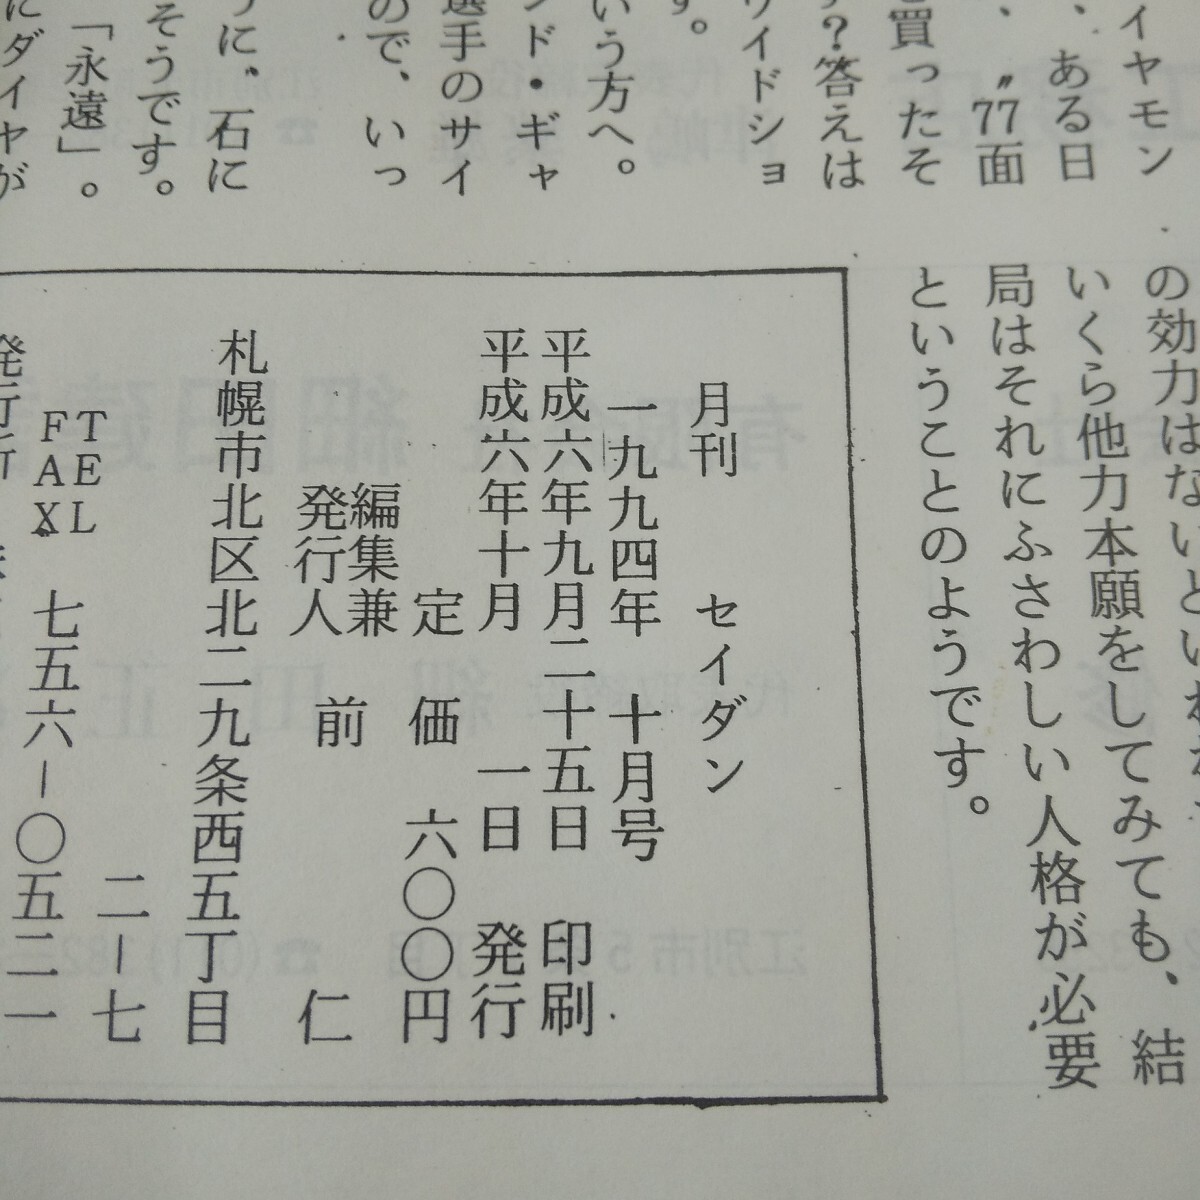 イヤモン
、ある日
、〝77面
を買ったそ
？答えは
サイドショ
す。
いう方へ。
ンド・ギャ
選手のサイ
ので、いっ
うに、石に
そうです。
「永遠」。
にダイヤが
の効力はないといわ
いくら他力本願をしてみても、結
局はそれにふさわしい人格が必要
ということのようです。
月刊 セイダン
一九九四年 十月号
平成六年九月二十五日 印刷
平成六年十月 一日 発行
定価 六〇〇円
編集兼
発行人 前 仁
札幌市北区北二九条西五丁目
二－七
TEL
FAX 七五六－〇五二一
発行所